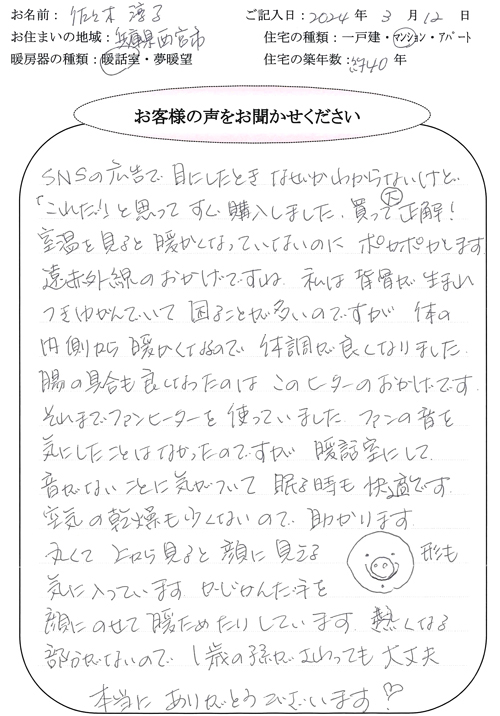 お名前：佐々木 淳子 ご記入日：2024年 3月 12日
お住まいの地域：兵庫県西宮市 住宅の種類：一戸建・マンション・アパート
暖房器の種類：暖話室・夢暖望 住宅の築年数：約40年
お客様の声をお聞かせください
SNSの広告で 目にしたとき なぜかわからないけど
「これだ！」と思って すぐ購入しました。買って大正解！
室温を見ると 暖かくなっていないのに ポカポカします
遠赤外線のおかげですね。私は 背骨が 生まれ
つきゆがんでいて 困ることが多いのですが 体の
内側から 暖かくなるので 体調が良くなりました。
腸の具合も 良くなったのは このヒーターのおかげです。
それまでファンヒーターを 使っていました。ファンの音を
気にしたことはなかったのですが 暖話室にして
音がないことに気がついて 眠る時も 快適です。
空気の乾燥も少くないので 助かります。
丸くて 上から見ると 顔に見える 形も
気に入っています。かじかんだ手を
顔にのせて 暖ためたりしています。熱くなる
部分がないので 1歳の孫が さわっても 大丈夫
本当に ありがとうございます！♡